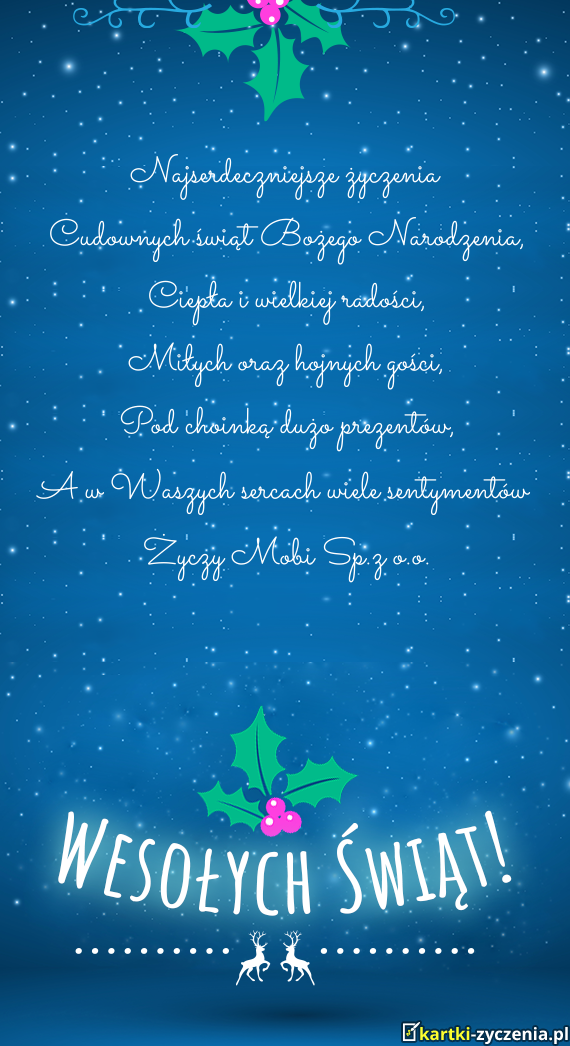 Najserdeczniejsze życzenia
Cudownych świąt Bożego Narodzenia,
Ciepła i wielkiej radości,
Miłych oraz hojnych gości,
Pod choinką dużo prezentów,
A w Waszych sercach wiele sentymentów
Życzy Mobi Sp.z o.o.
Wesołych Świąt!
kartki-zyczenia.pl